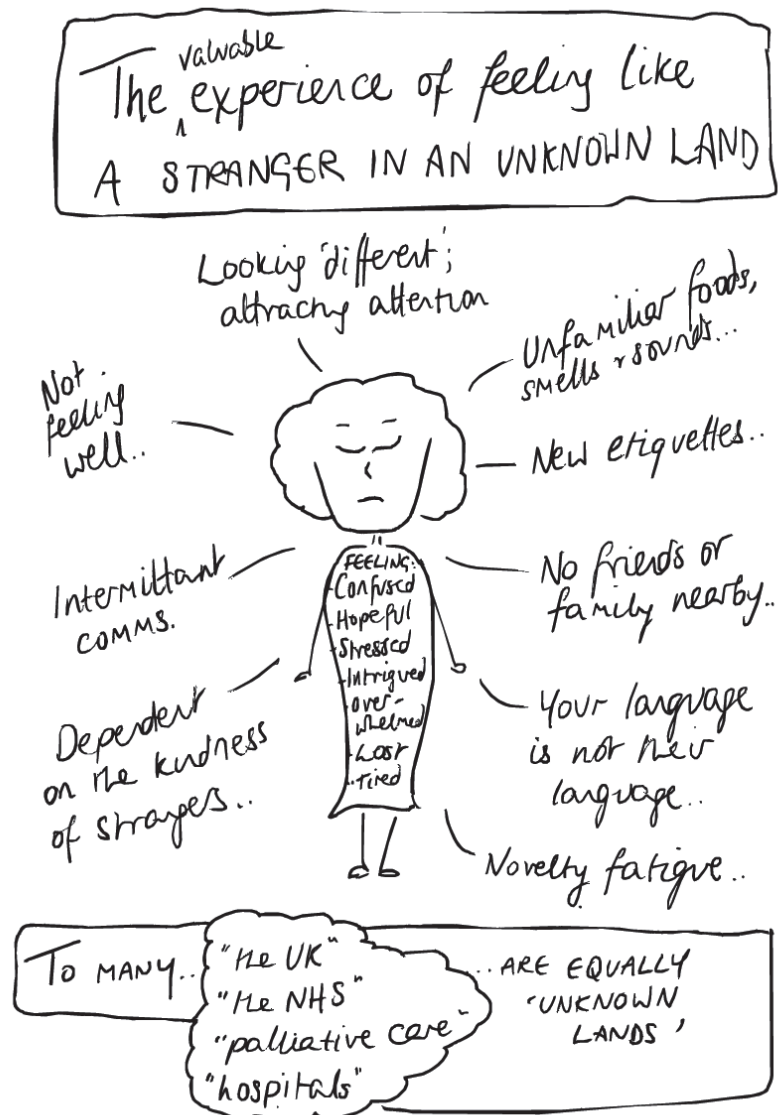 The valuable experience of feeling like
A STRANGER IN AN UNKNOWN LAND
Looking 'different';
attracting attention
Unfamiliar foods,
smells + sounds...
Not
feeling
well..
New etiquettes..
Intermittant
COMMS.
No friends or
family nearby..
Dependent
on the kindness
of strangers..
Your language
is not their
language..
Novelty fatigue..
FEELING:
-Confused
-Hopeful
-Stressed
-Intrigued
-over-
whelmed
-Lost
-Tired
TO MANY..
"the UK"
"the NHS"
"palliative care"
"hospitals"
...ARE EQUALLY
'UNKNOWN
LANDS'